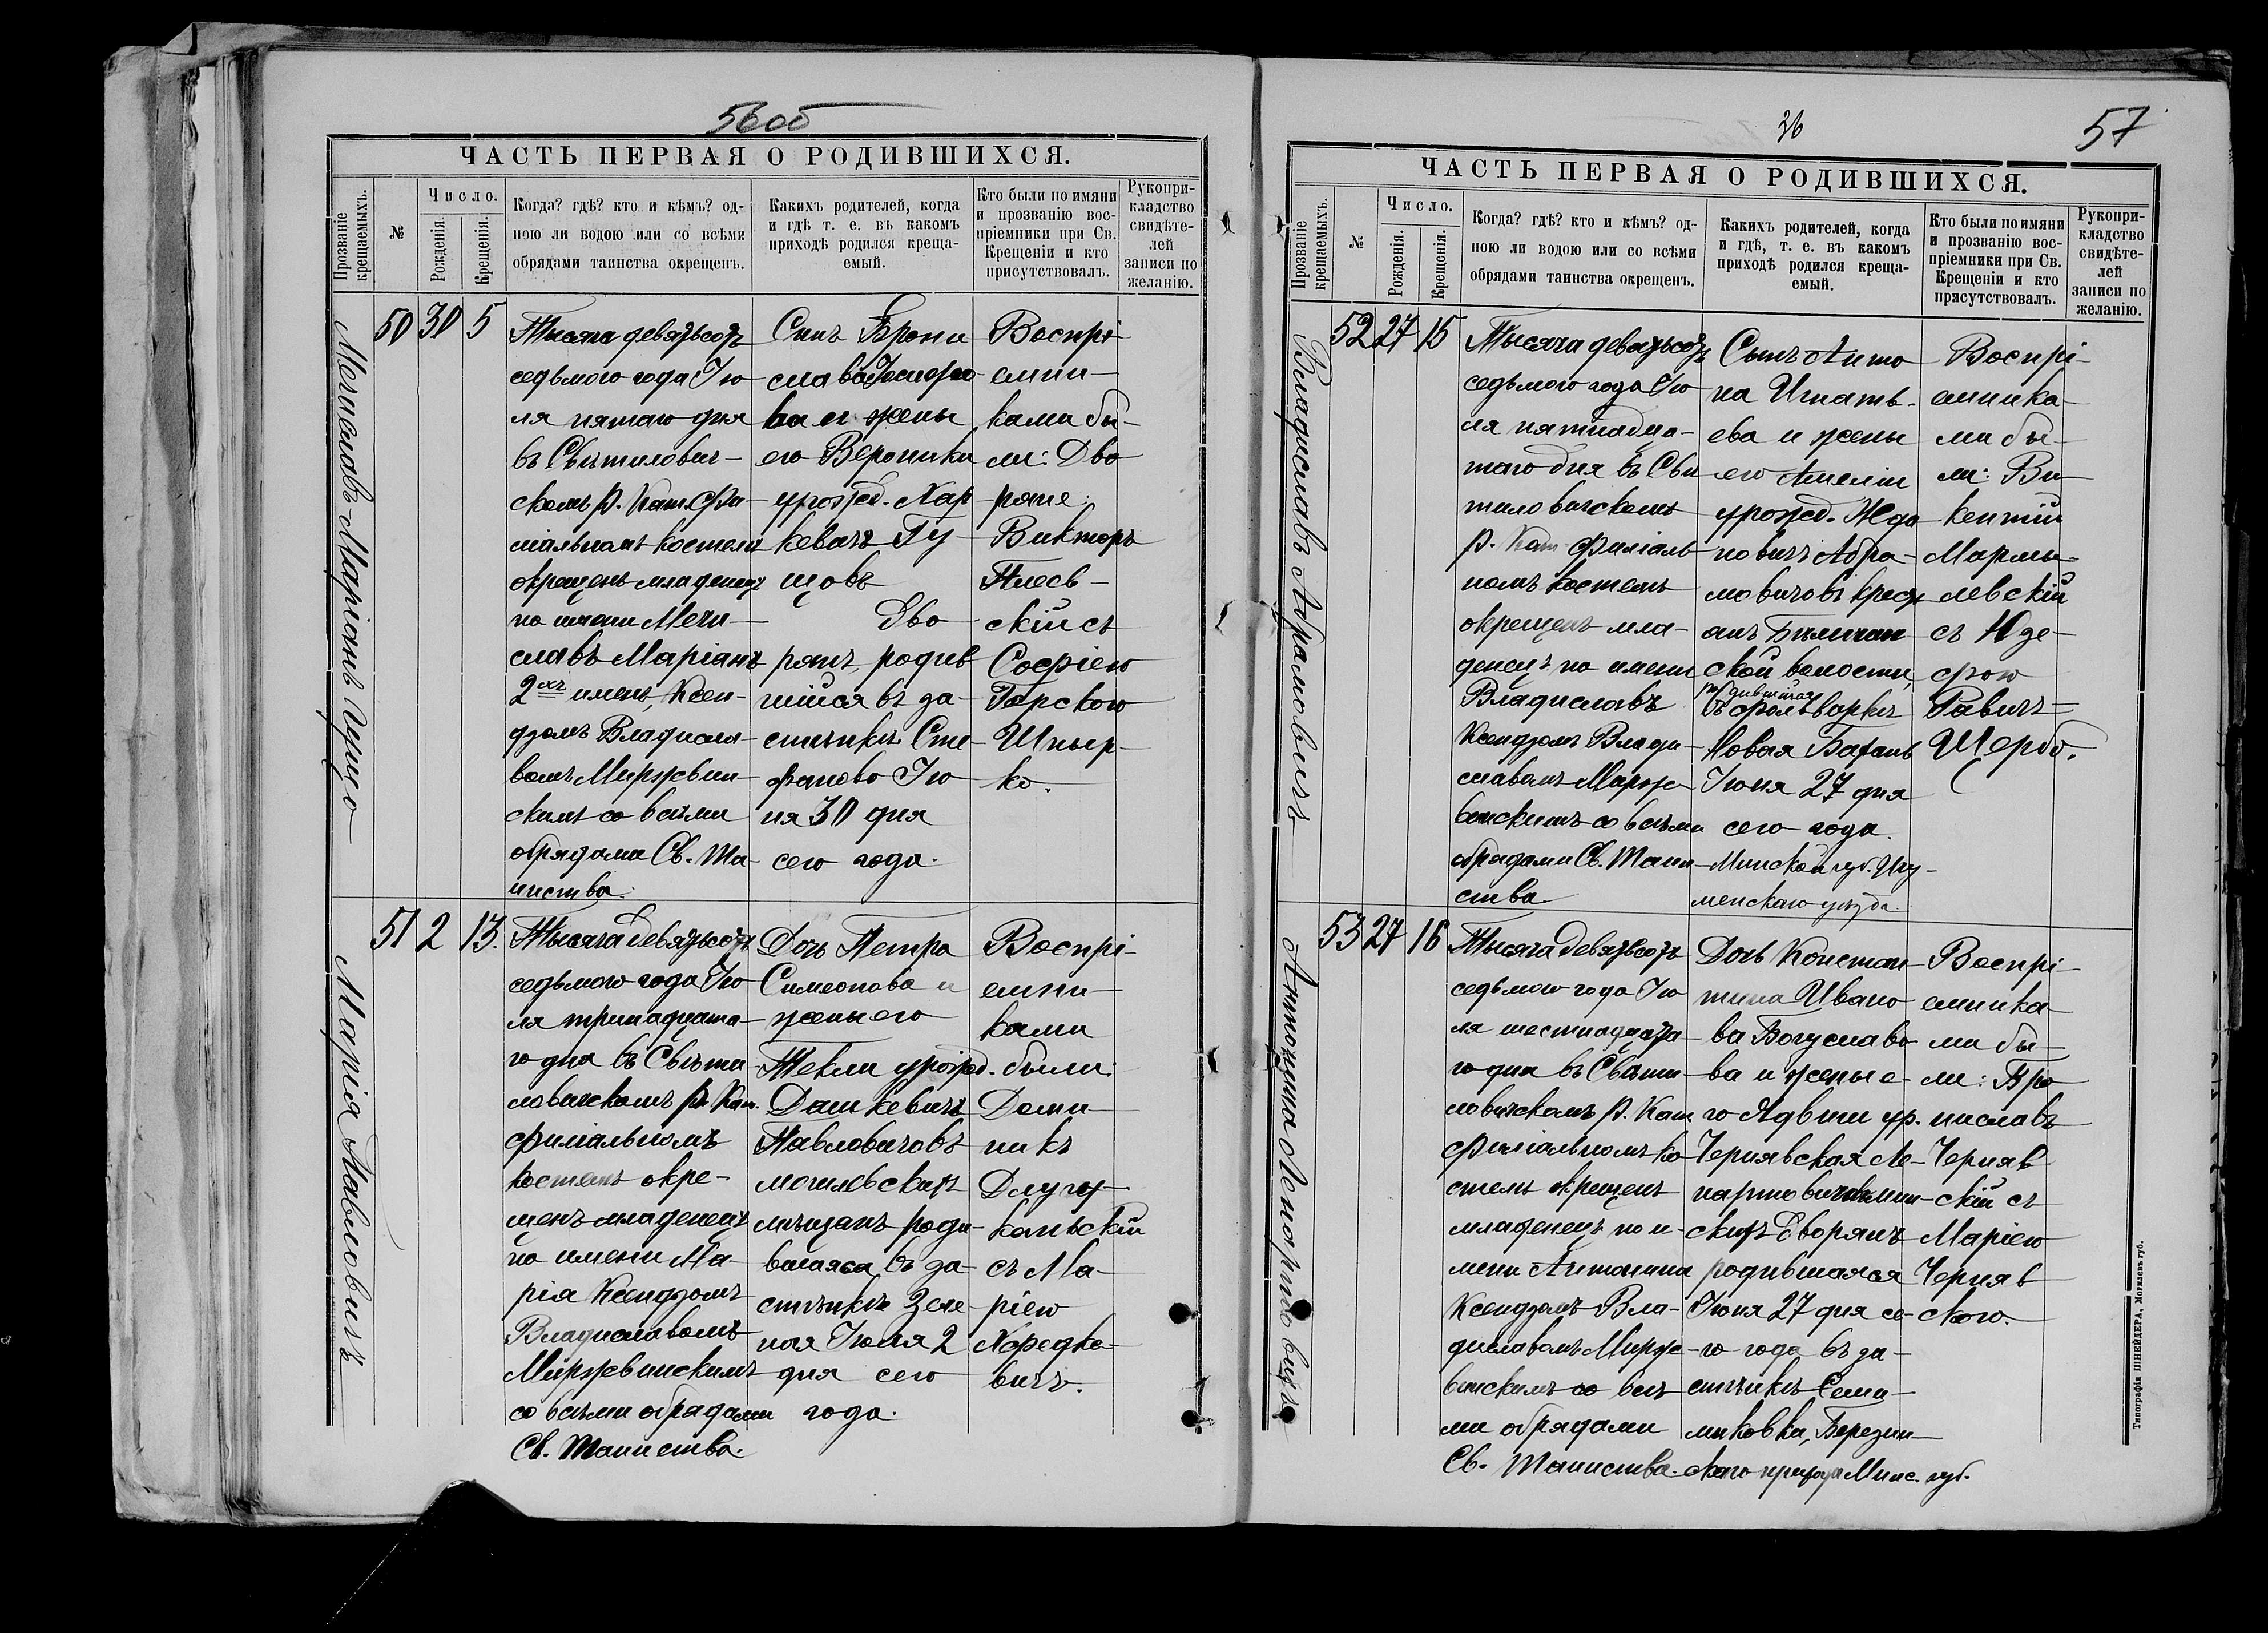 56об
ЧАСТЬ ПЕРВАЯ О РОДИВШИХСЯ.
Прозваніе крещаемыхъ.
№
Число.
Рожденія.
Крещенія.
Когда? гдѣ? кто и кѣмъ? од-
ною ли водою или со всѣми
обрядами таинства окрещенъ.
Какихъ родителей, когда
и гдѣ т. е. въ какомъ
приходѣ родился креща-
емый.
Кто были по имяни
и прозванію вос-
пріемники при Св.
Крещеніи и кто
присутствовалъ.
Рукопри-
кладство
свидѣте-
лей
записи по
желанію.
Мечиславъ-Маріанъ Гуща
50
30
5
Тысяча девятьсотъ
седьмого года Ію
ля пятаго дня
въ Свѣтилович-
скомъ р. Кат. Фи-
ліальномъ костелѣ
окрещенъ младенецъ
по имени Мечи-
славъ Маріанъ
2хъ именъ, Ксен-
дзомъ Владисла-
вомъ Миржвин-
скимъ со всѣми
обрядами Св. Та-
инства.
Сынъ Брони
слава
ва и жены
его Вероники
урожд. Хар
кевичъ Гу
щовъ
Дво
рянъ, родив
шійся въ за-
стѣнкѣ Сте-
фаново Ію
ня 30 дня
сего года.
Воспрі
емни-
ками бы-
ли: Дво
ряне:
Викторъ
Плесв-
скій съ
Софіею
Горскою
Шпыр-
ко.
Марія Павловичъ
51
2
13.
Тысяча девятьсотъ
седьмого года Ію
ля тринадцата-
го дня въ Свѣти-
ловичскомъ р. Кат.
филіальномъ
костелѣ окре-
щенъ младенецъ
по имени Ма-
рія Ксендзомъ
Владиславомъ
Миржвинскимъ
со всѣми обрядами
Св. Таинства.
Дочь Петра
Симеонова и
жены его
Текли урожд.
Дашкевичъ
Павловичовъ
могилевскихъ
мѣщанъ роди-
вшаяся въ за-
стѣнкѣ Зеле-
ная Іюля 2
дня сего
года.
Воспрі-
емни-
ками
были:
Доми-
никъ
Длугу-
канскій
съ Ма-
ріею
Ходке-
вичъ.
26
57
ЧАСТЬ ПЕРВАЯ О РОДИВШИХСЯ.
Прозваніе крещаемыхъ.
№
Число.
Рожденія.
Крещенія.
Когда? гдѣ? кто и кѣмъ? од-
ною ли водою или со всѣми
обрядами таинства окрещенъ.
Какихъ родителей, когда
и гдѣ, т. е. въ какомъ
приходѣ родился креща-
емый.
Кто были по имяни
и прозванію вос-
пріемники при Св.
Крещеніи и кто
присутствовалъ.
Рукопри-
кладство
свидѣте-
лей
записи по
желанію.
Владиславъ Абрамовичъ
52
27
15
Тысяча девятьсотъ
седьмого года Ію
ля пятнадца-
таго дня въ Свѣ
тиловичскомъ
р. Кат. филіаль
номъ костелѣ
окрещенъ мла-
денецъ по имени
Владиславъ
Ксендзомъ Влади-
славомъ Мирж-
винскимъ со всѣми
обрядами Св. Таин-
ства.
Сынъ Анто
на Игнать-
ева и жены
его Амеліи
урожд. Жда
новичъ Абра-
мовичовъ крест
анъ
ской волости,
родившійся
въ фольваркѣ
Новая
Іюня 27 дня
сего года.
Минской губ. Игу-
менскаго уѣзда.
Воспрі-
емника-
ми бы-
ли: Ви-
кентій
Мармы-
левскій
съ Юзе-
фою
Равичъ-
Щерб.
Антонина Лепартовичъ
53
27
16
Тысяча девятьсотъ
седьмого года Ію
ля шестнадцата-
го дня въ Свѣти-
ловичскомъ р. Кат.
филіальномъ ко-
стелѣ окрещенъ
младенецъ по и-
мени Антонина
Ксендзомъ Вла-
диславомъ Мирж-
винскимъ со всѣ
ми обрядами
Св. Таинства.
Дочь Констан-
тина Ивано
ва Богуславо
ва и жены е-
го Ядвиги ур.
Чернявская Ле-
партовичъ мин-
скихъ дворянъ
родившаяся
Іюня 27 дня се-
го года въ за-
стѣнкѣ Семи-
лѣковка, Березин-
скаго прихода Минс. губ.
Воспрі-
емника-
ми бы-
ли: Бро
ниславъ
Черняв
скій съ
Маріею
Черняв
скою.
Типографія ШНЕЙДЕРА, Могилевъ губ.